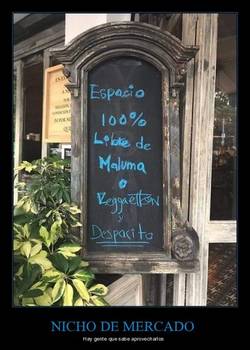 Espacio
100%
Libre de
Maluma
o
Reggaetton
y
Despacito
NICHO DE MERCADO
Hay gente que sabe aprovecharlos